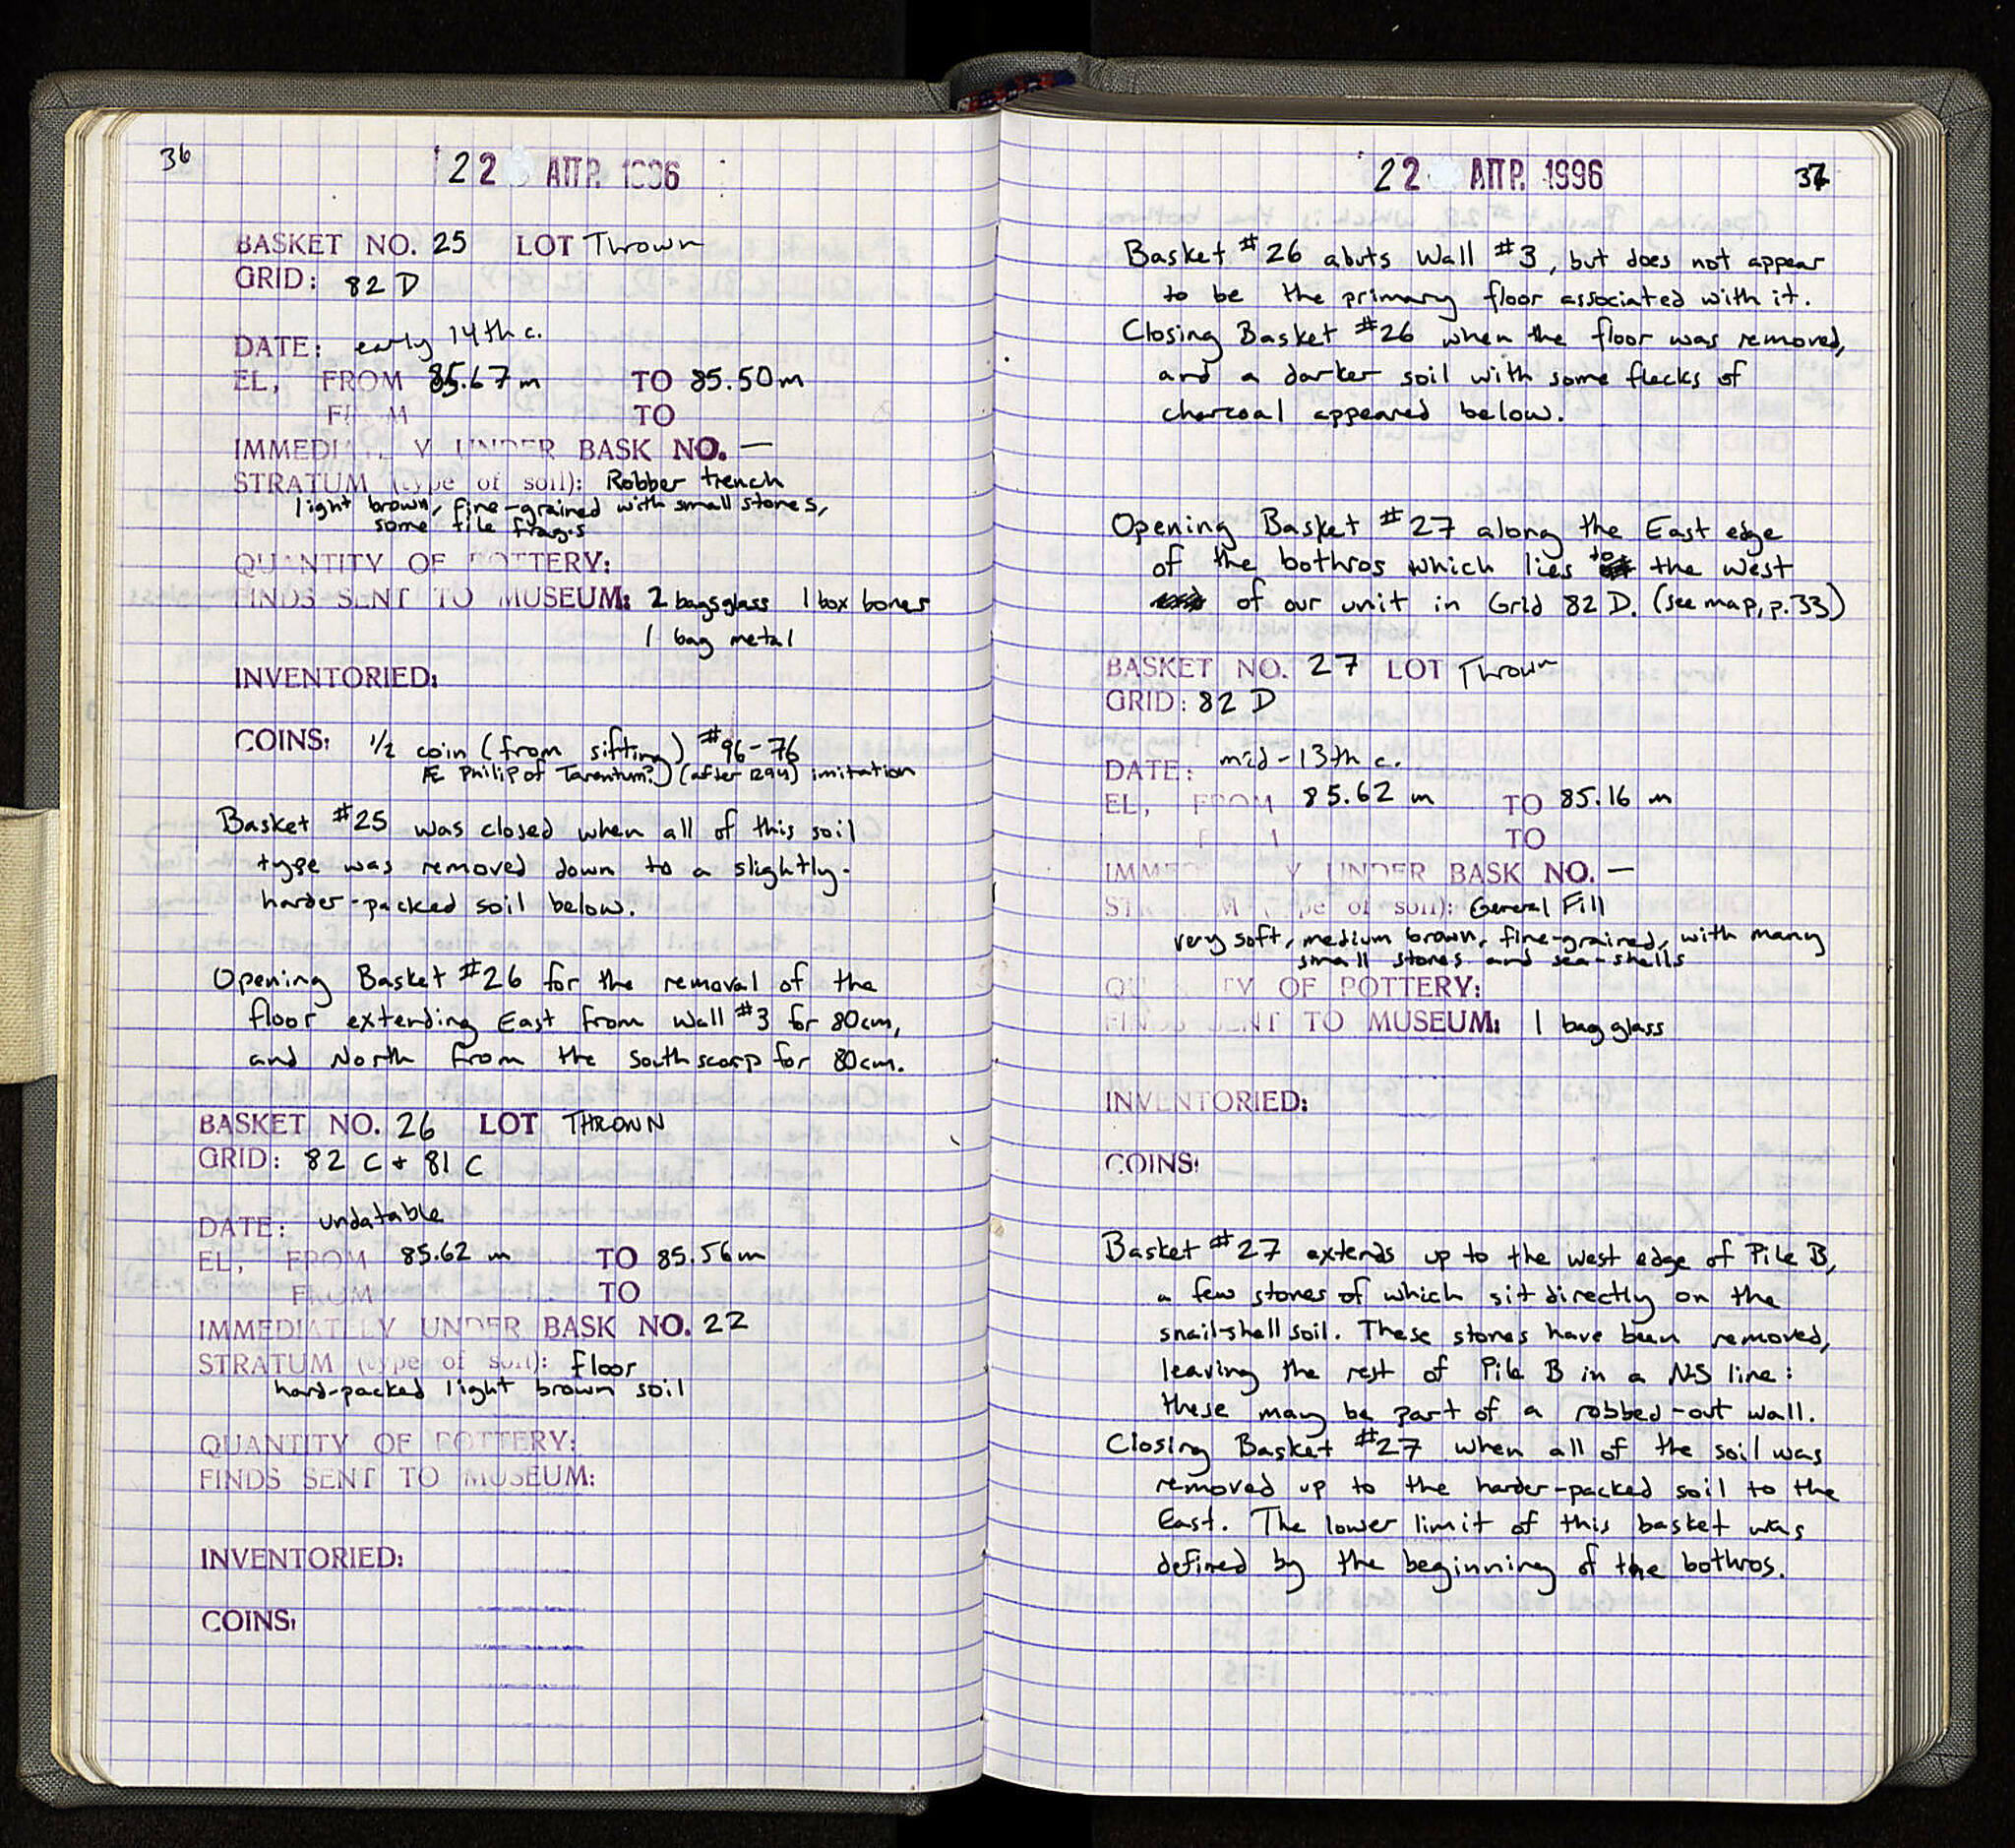 36
22 ΑΠΡ. 1996
BASKET NO. 25 LOT Thrown
GRID: 82 D
DATE: early 14th c.
EL, FROM 85.67 m TO 85.50 m
FROM TO
IMMEDIATELY UNDER BASK NO. —
STRATUM (type of soil): Robber trench
light brown, fine-grained with small stones,
some tile frags
QUANTITY OF POTTERY:
FINDS SENT TO MUSEUM: 2 bags glass 1 box bones
1 bag metal
INVENTORIED:
COINS: 1/2 coin (from sifting) #96-76
Æ Philip of Tarentum?) (after 1294) imitation
Basket #25 was closed when all of this soil
type was removed down to a slightly-
harder-packed soil below.
Opening Basket #26 for the removal of the
floor extending East from Wall #3 for 80cm,
and North from the south scarp for 80cm.
BASKET NO. 26 LOT THROWN
GRID: 82 C + 81 C
DATE: undatable
EL, FROM 85.62 m TO 85.56 m
FROM TO
IMMEDIATELY UNDER BASK NO. 22
STRATUM (type of soil): floor
hard-packed light brown soil
QUANTITY OF POTTERY:
FINDS SENT TO MUSEUM:
INVENTORIED:
COINS:
22 ΑΠΡ. 1996
37
Basket #26 abuts Wall #3, but does not appear
to be the primary floor associated with it.
Closing Basket #26 when the floor was removed,
and a darker soil with some flecks of
charcoal appeared below.
Opening Basket #27 along the East edge
of the bothros which lies to the west
of our unit in Grid 82 D. (see map, p.33)
BASKET NO. 27 LOT Thrown
GRID: 82 D
DATE: mid-13th c.
EL, FROM 85.62 m TO 85.16 m
FROM TO
IMMEDIATELY UNDER BASK NO. —
STRATUM (type of soil): General Fill
very soft, medium brown, fine-grained, with many
small stones and sea-shells
QUANTITY OF POTTERY:
FINDS SENT TO MUSEUM: 1 bag glass
INVENTORIED:
COINS:
Basket #27 extends up to the west edge of Pile B,
a few stones of which sit directly on the
snail-shell soil. These stones have been removed,
leaving the rest of Pile B in a N-S line:
these may be part of a robbed-out wall.
Closing Basket #27 when all of the soil was
removed up to the harder-packed soil to the
East. The lower limit of this basket was
defined by the beginning of the bothros.